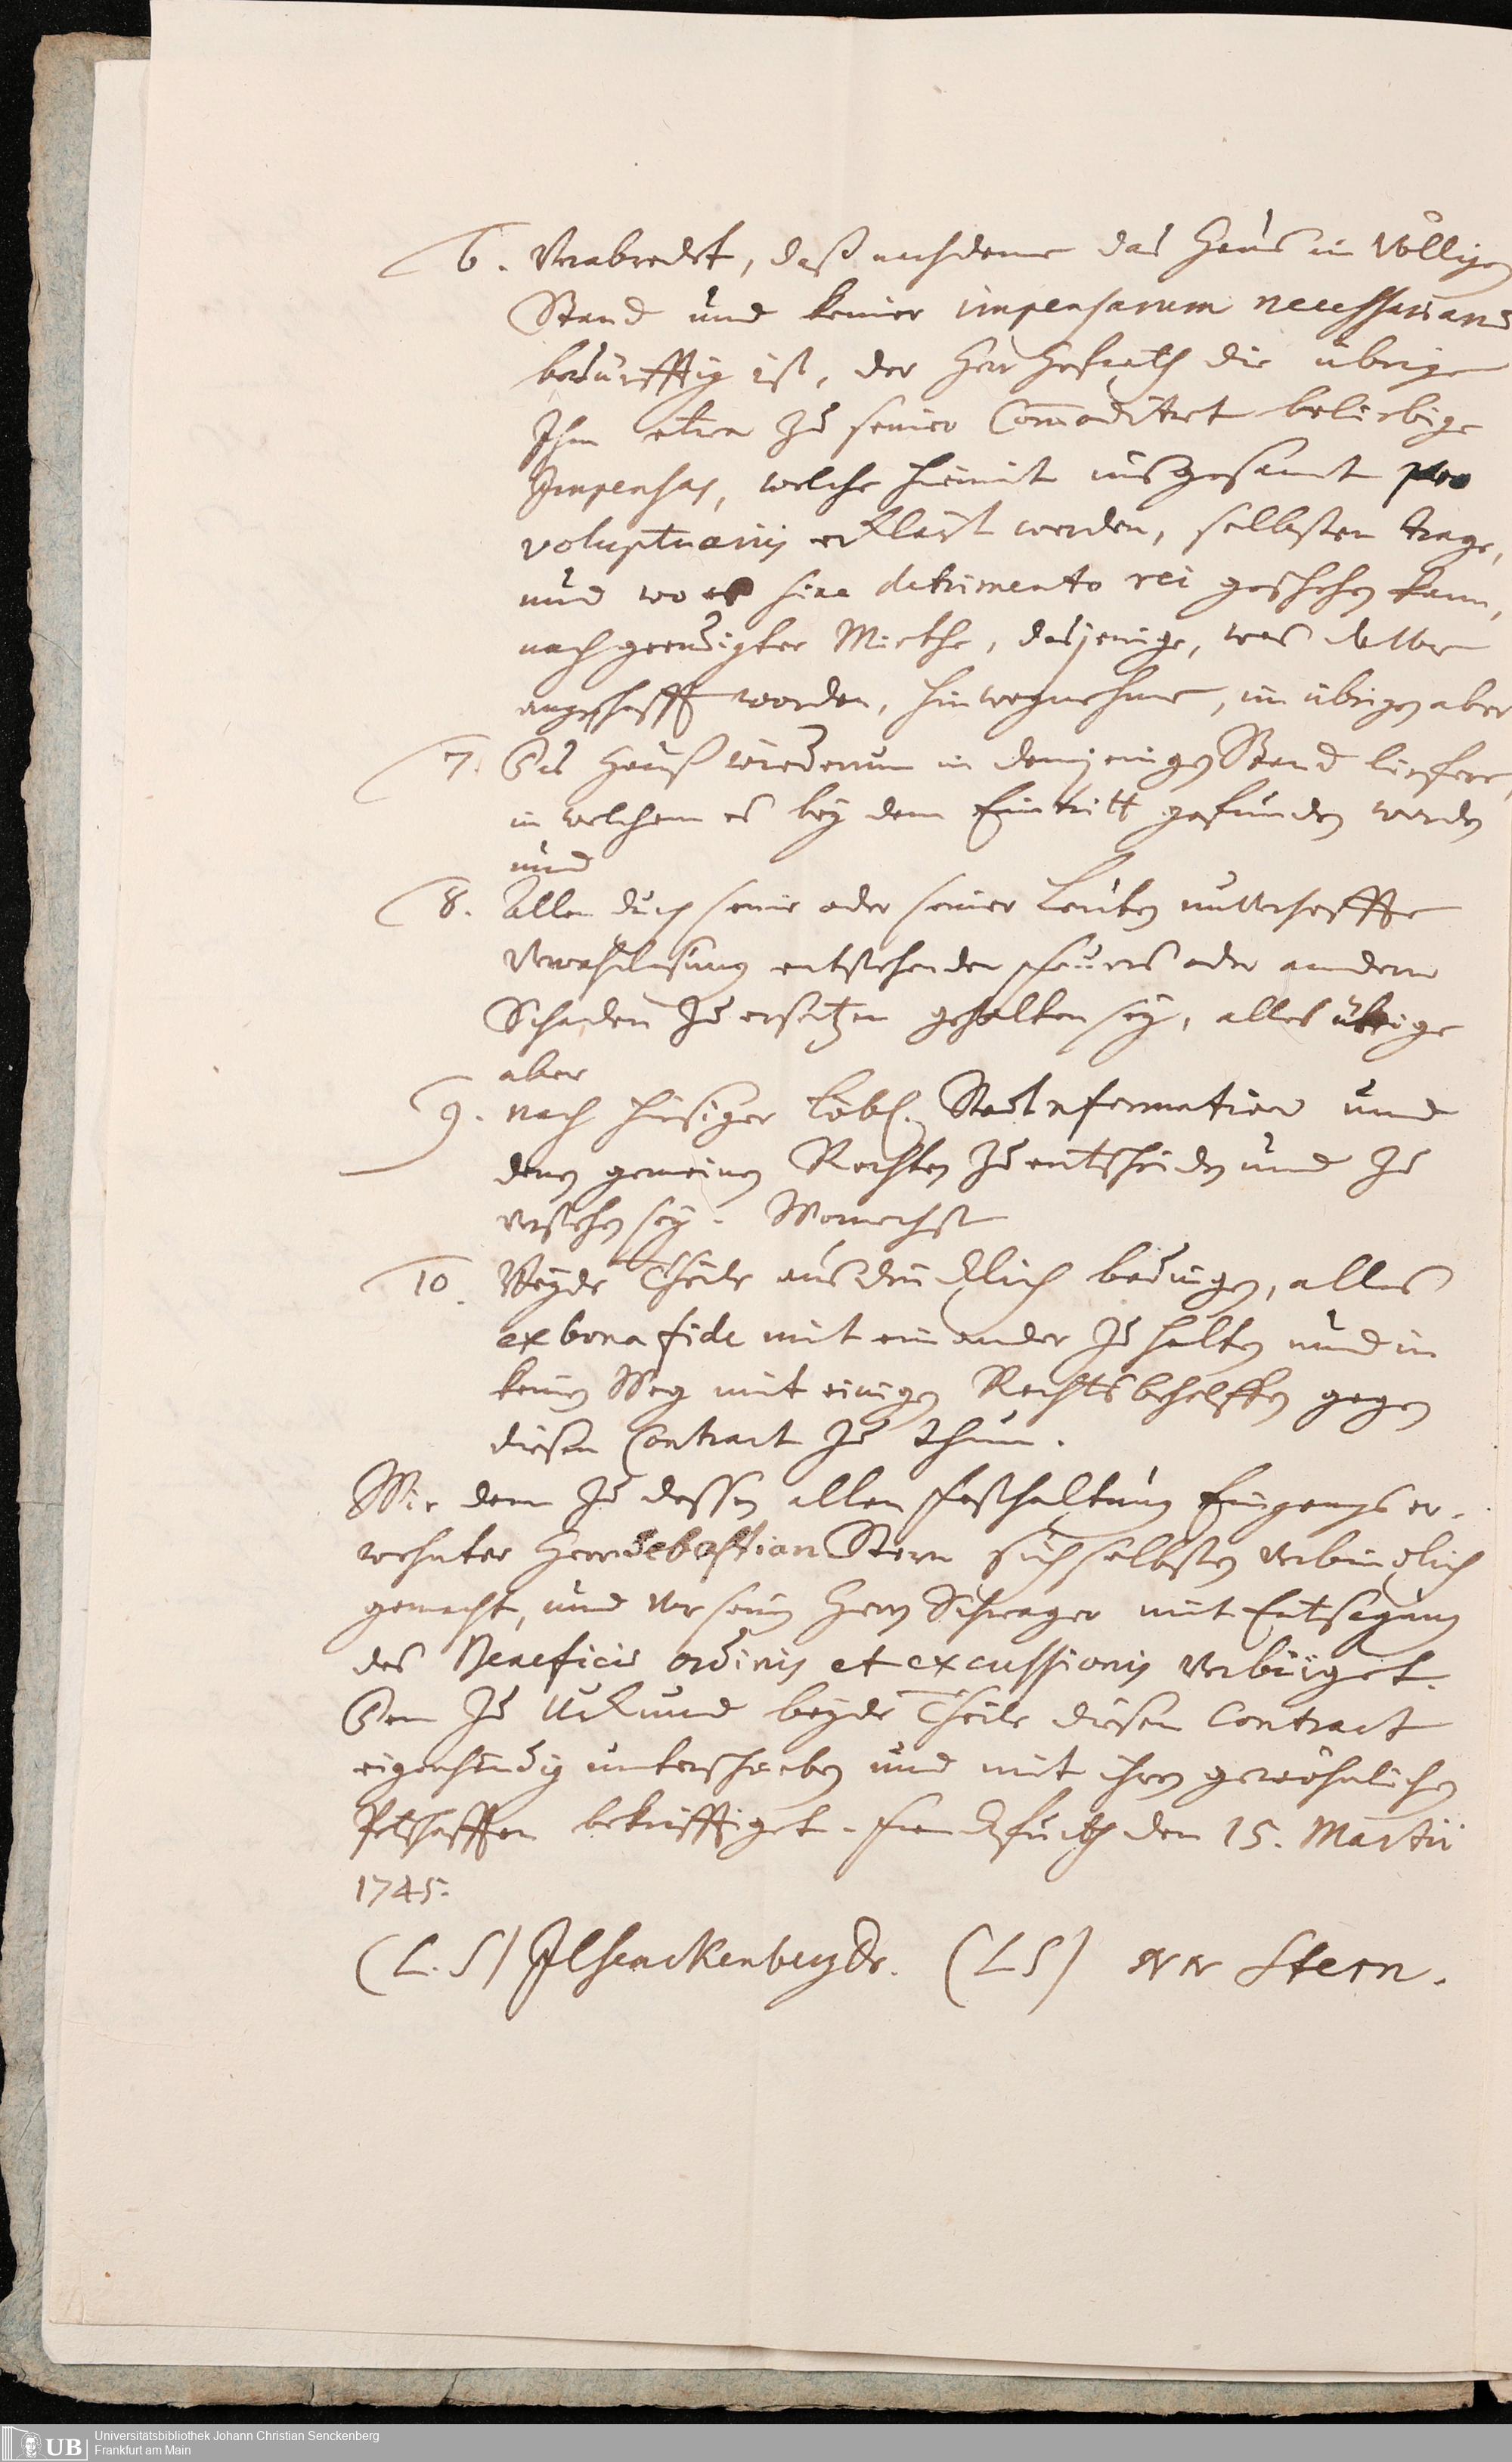 6. Verabredet, daß nachdeme das Haus in völligen
Stand und keiner impensarum necessariarum
bedürfftig ist, der Herr Hofrath die übrigen
Ihm etwa zu seiner Commoditaet beliebige
Impensas, welche hiemit insgesamt pro
voluptuariis erklärt werden, selbsten trage,
und wo es sine detrimento rei geschehen kann,
nach geendigter Miethe, dasjenige, was
angeschafft worden, hinwegnehme, im übrigen aber
7. Das Hauß wiederum in demjenigen Stand liefere,
in welchem es bey dem Eintritt gefunden worden
und
8. Allen durch seine oder seiner Leuten
Verwahrlosung entstehenden Feuers oder andern
Schaden zu ersetzen gehalten sey, alles übrige
aber
9. nach hiesiger Löbl. Stadtreformation und
denen gemeinen Rechten zu entscheiden und zu
verstehen sey. Wornechst
10. Beyde Theile ausdrücklich bedingen, alles
ex bona fide mit einander zu halten und in
keinen Weg mit einigen Rechtsbehelffen gegen
diesen Contract zu thun.
Wie denn zu dessen allen Festhaltung Eingangs er-
wehnter Herr Sebastian Stern sich selbsten verbindlich
gemacht, und vor seinen Herrn Schwager mit Entsagung
des Beneficii ordinis et excussionis verbürget.
Den zu Urkund beyde Theile diesen Contract
eigenhändig unterschrieben und mit ihren gewöhnlichen
Petschafften bekräfftiget. Franckfurth den 15. Martii
1745.
(L.S) Senckenberg Dr. (LS) Stern.
Universitätsbibliothek Johann Christian Senckenberg
UB Frankfurt am Main